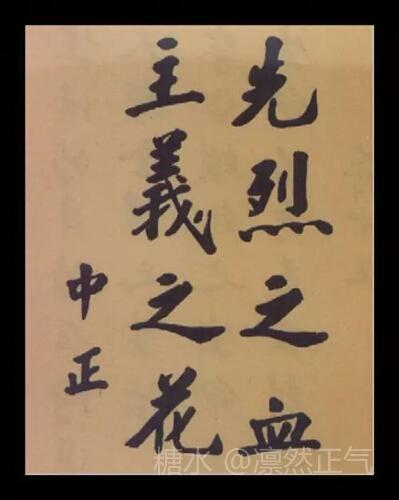 先烈之血
主義之花
中正
糖水 @凛然正气